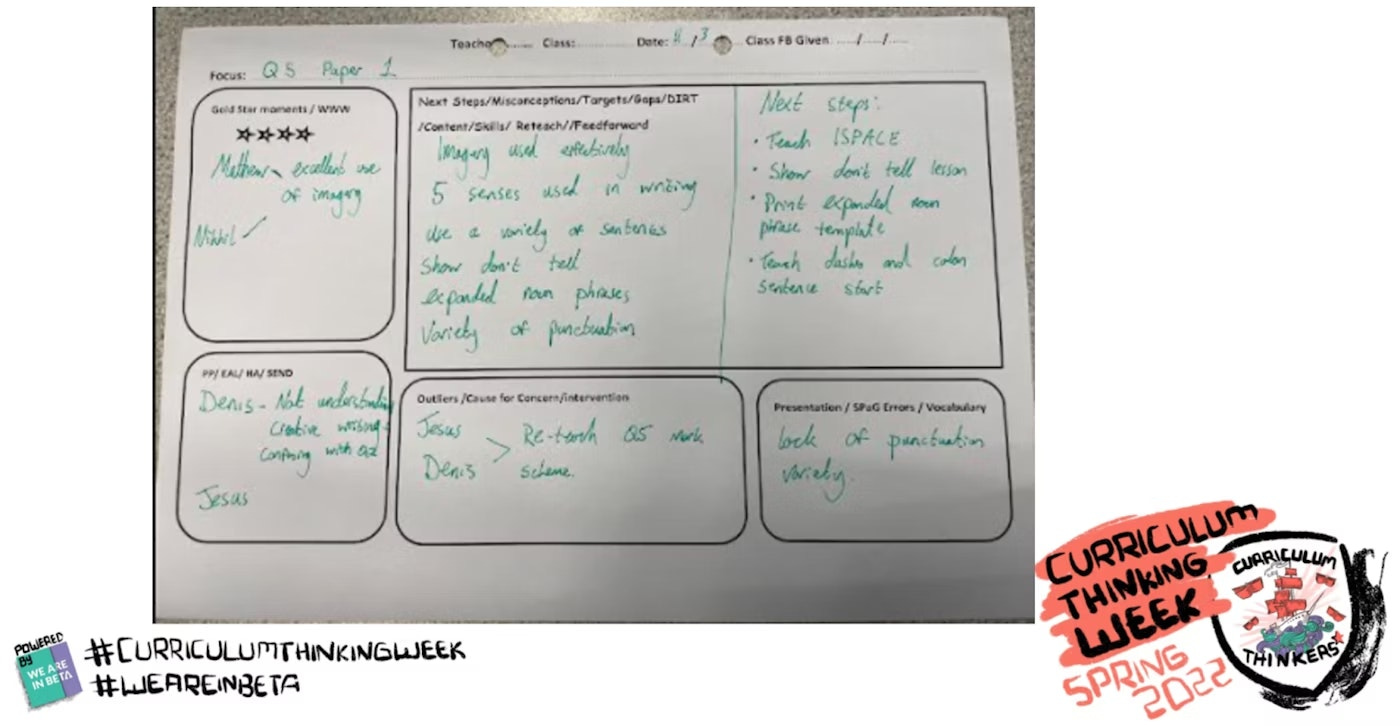 Teacher....... Class:............... Date: 8/3 Class FB Given...../...../.....
Focus: Q5 Paper 1
Gold Star moments / WWW
Mathew - excellent use
of imagery
Nikhil
Next Steps/Misconceptions/Targets/Gaps/DIRT
/Content/Skills/ Reteach//Feedforward
Imagery used effectively
5 senses used in writing
Use a variety of sentences
Show don't tell
expanded noun phrases
Variety of punctuation
Next steps:
• Teach ISPACE
• Show don't tell lesson
• Print expanded noun
phrase template
• Teach dashes and colon
sentence start
PP/ EAL/ HA/ SEND
Denis - Not understanding
creative writing -
Confusing with Q2
Jesus
Outliers /Cause for Concern/intervention
Jesus
Denis > Re-teach Q5 mark
scheme.
Presentation / SPaG Errors / Vocabulary
lack of punctuation
variety.
POWERED
BY
WE ARE
IN BETA
#CURRICULUMTHINKINGWEEK
#WEAREINBETA
CURRICULUM
THINKING
WEEK
SPRING
2022
CURRICULUM
THINKERS